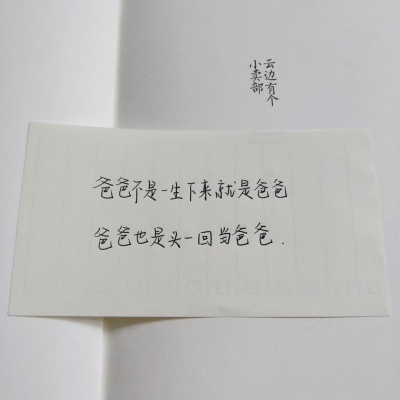 云边有个
小卖部
爸爸不是一生下来就是爸爸
爸爸也是头一回当爸爸.